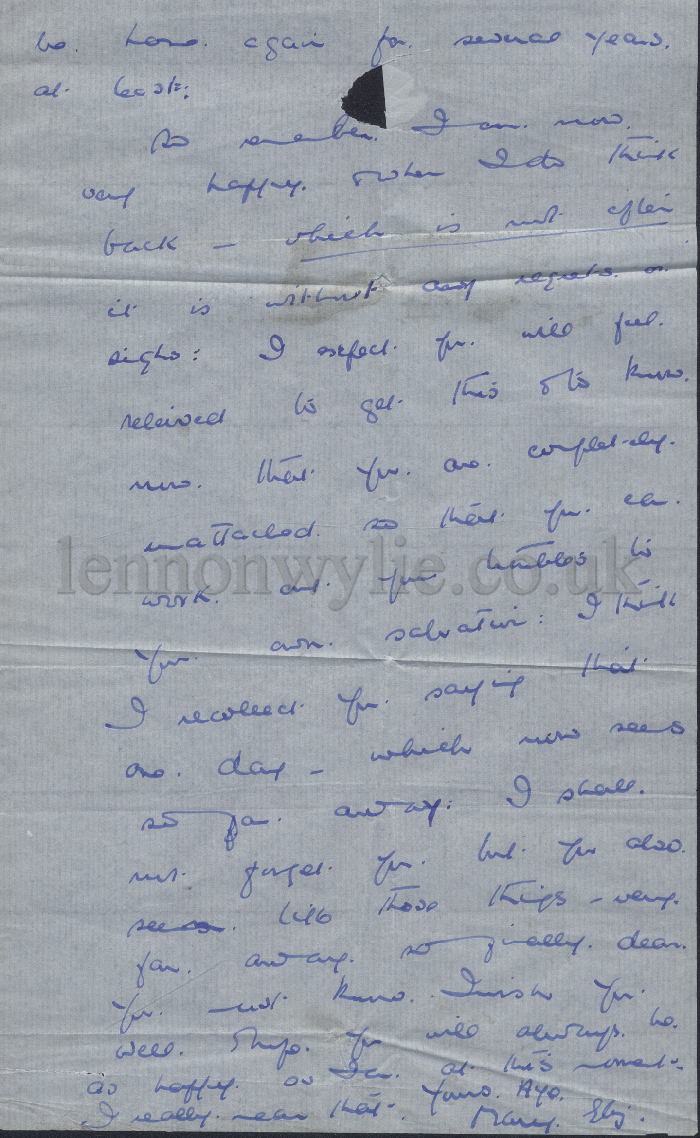 be home again for several years.
at least:
So remember. I am. now.
very happy. & when I do think
back – which is not often
it is without any regrets or
sighs: I expect you will feel
relieved to get this & to know.
now. that you are completely.
unattached. so that you can
lennonwylie.co.uk
work out your troubles to
your own. salvation: I think
I recollect you saying that
one. day – which now seems
so far. away: I shall.
not forget you. but you also.
seem. like those things – very.
far. away. so finally. dear.
you. must know. I wish you.
well. & hope. you will always. be.
as happy. as I am. at this moment.
I really mean that. Yours. Aye.
Mary. Eliz.